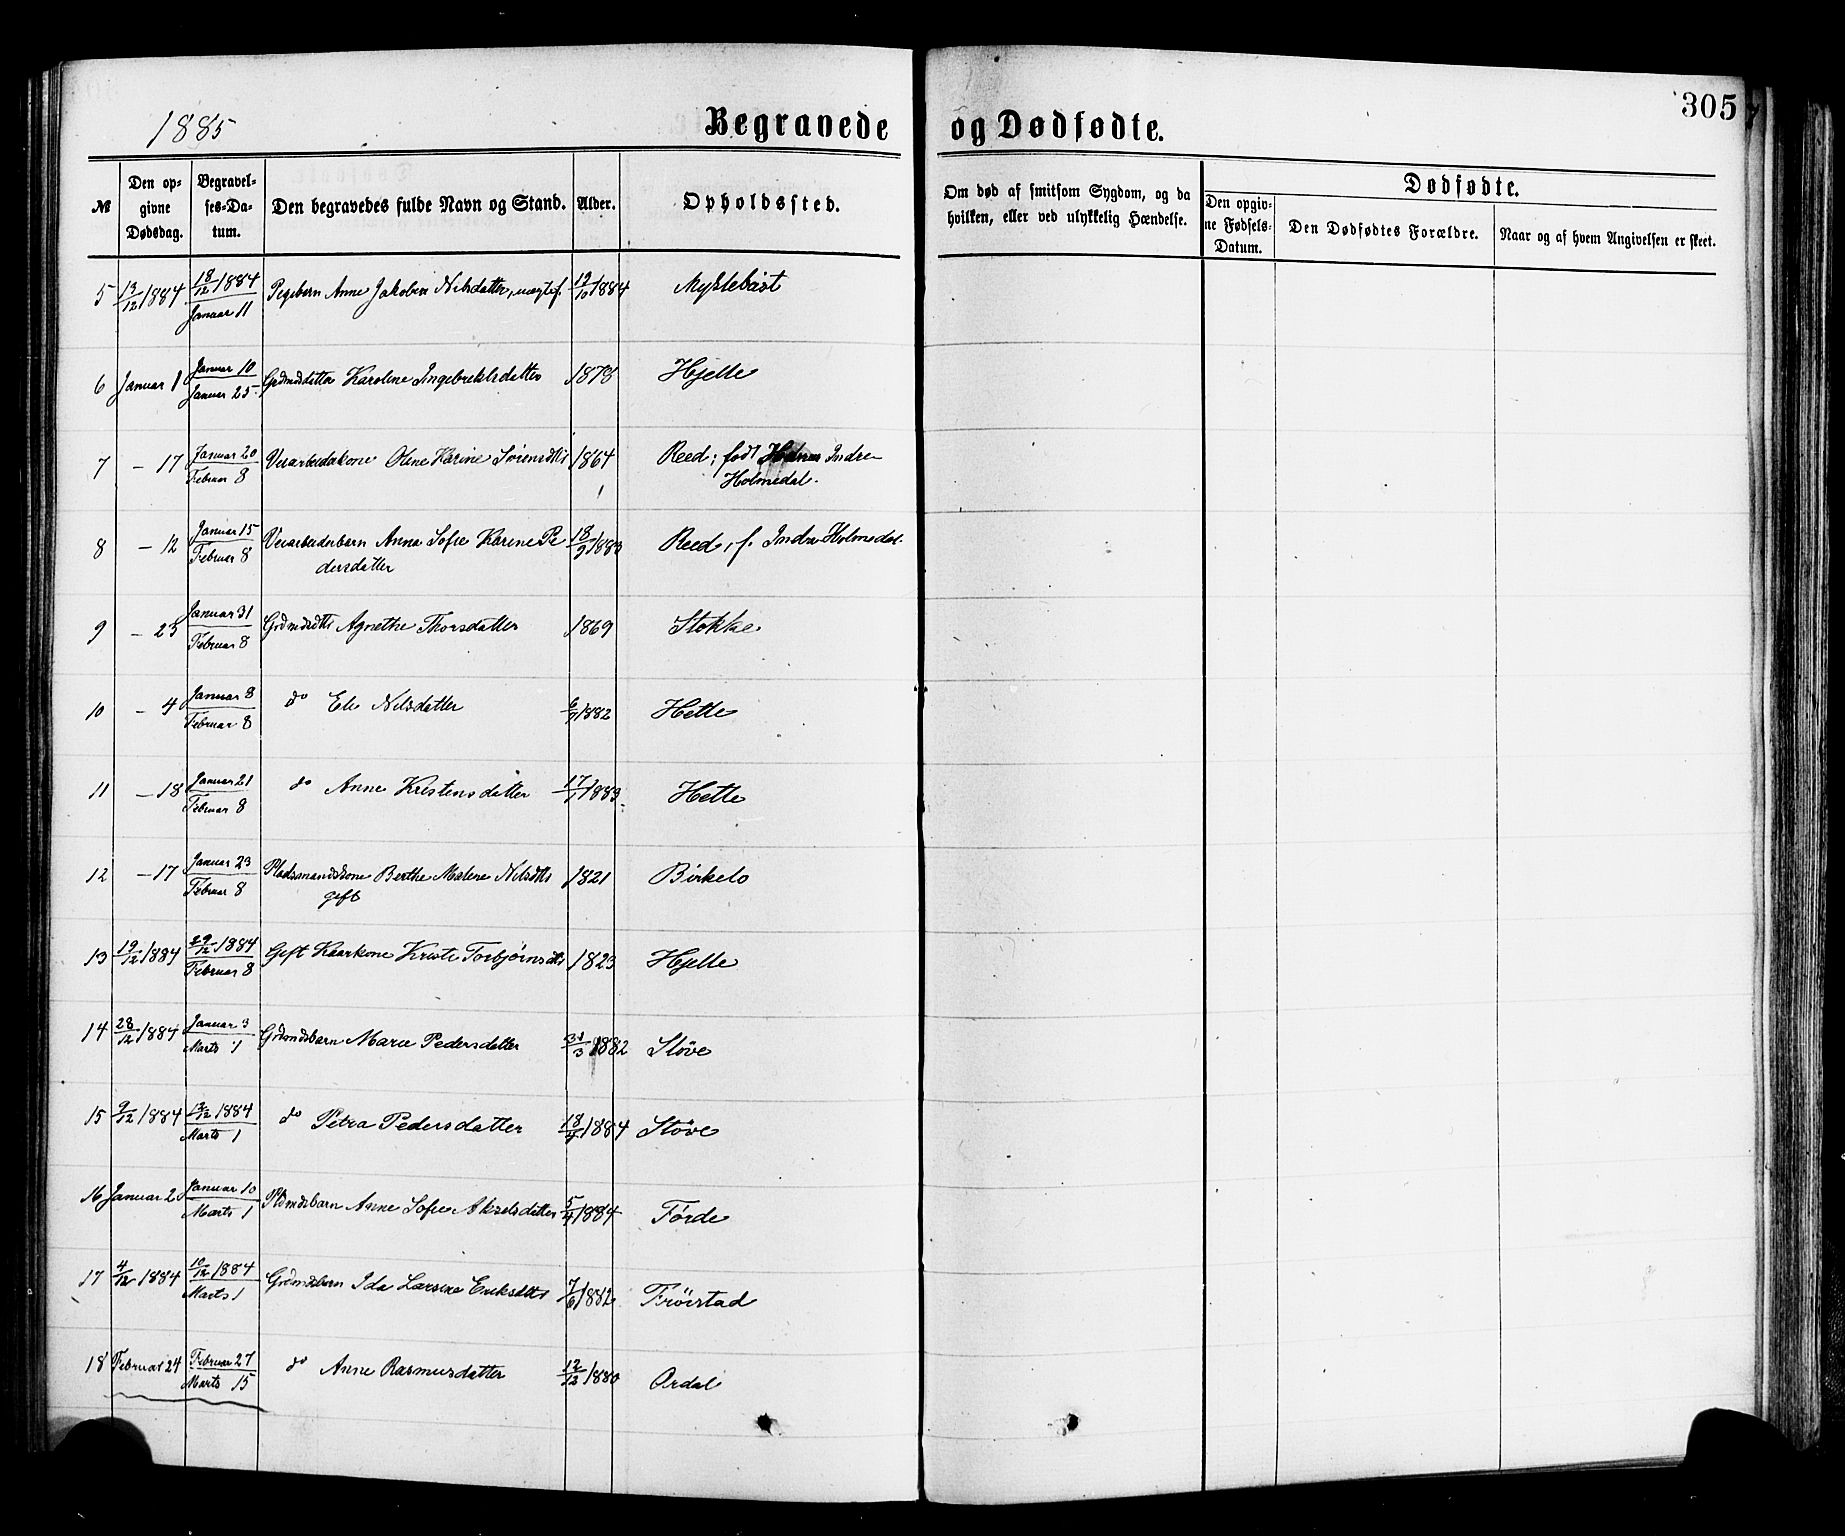 305
1885
Begravede og Dødfødte.
№
Den opgivne Dødsdag.
Begravelses-Datum.
Den begravedes fulde Navn og Stand.
Alder.
Opholdssted.
Om død af smitsom Sygdom, og da hvilken, eller ved ulykkelig Hændelse.
Dødfødte.
Den opgivne Fødsels-Datum.
Den Dødfødtes Forældre.
Naar og af hvem Angivelsen er skeet.
5 13/12 1884 18/12 1884 Januar 11 Pigebarn Anne Jakobine Nilsdatter, uægtef. 19/10 1884 Myklebust
6 Januar 1 Januar 10 Januar 25 Grdmdsdatter Karoline Ingebrektsdatter 1878 Hjelle
7 – 17 Januar 20 Februar 8 Veiarbeiderkone Oline Karine Sørensdtr 1864 Reed; født Indre
Holmedal.
8 – 12 Januar 15 Februar 8 Veiarbeiderbarn Anna Sofie Karine Pe 18/9 1883 Reed, f. Indre Holmedal.
dersdatter
9 – 23 Januar 31 Februar 8 Grdmdsdtr Agnethe Thorsdatter 1869 Stokke
10 – 4 Januar 8 Februar 8 do Eli Nilsdatter 6/9 1882 Hette
11 – 18 Januar 21 Februar 8 do Anne Kristensdatter 17/7 1883. Hette
12 – 17 Januar 23 Februar 8 Pladsmandskone Berthe Malene Nilsdtr 1821 Birkelo
gift
13 19/12 1884 29/12 1884 Februar 8 Gift Kaarkone Kristi Torbjørnsdtr 1823 Hjelle
14 28/12 1884 Januar 3 Marts 1 Grdmdsbarn Marie Pedersdatter 31/3 1882 Støve
15 9/12 1884 13/12 1884 Marts 1 do Petra Pedersdatter 18/4 1884 Støve
16 Januar 2 Januar 10 Marts 1 Pldmdsbarn Anne Sofie Akselsdatter 5/4 1884 Förde
17 4/12 1884 10/12 1884 Marts 1 Grdmdsbarn Ida Larsine Eriksdtr 7/6 1882 Frøistad
18 Februar 24 Februar 27 Marts 15 do Anne Rasmusdatter 12/12 1880 Ordal